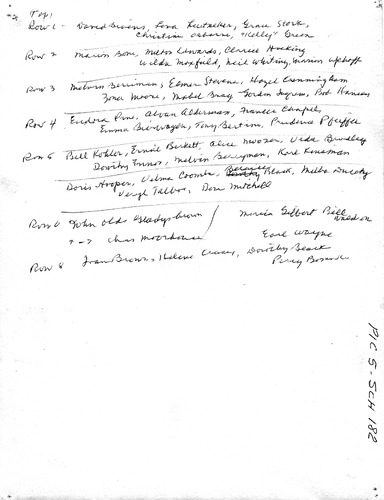 Top!
Row 1 - David Givens, Lora Leutzeker, Grace Stork,
Christine Osborne, "Kelley" Green
Row 2 Marion Bone, Melton Edwards, Clarice Hocking
Wilda Maxfield, Neil Whiting, Marion Uphoff
Row 3 Melvin Berriman, Elmer Stevens, Hazel Cunningham
Moore, Mabel Bray, Gordon Ingram, Bob
Row 4 Eudora Pine, Alvan Alderman, Frances Chapel,
Emma Bierwagen, Tony Bertram, Prudence Pfeiffer
Row 5 Bill Kohler, Ernie Beckett, Alice, Veda Brinsley
Dorothy Ennor, Melvin Berryman, Kirk Kinsman
Doris Hooper, Velma Coombs, Bernice Black, Melba
Virgil Talbot, Don Mitchell
Row 6 John Old Gladys Brown / Gilbert Bill
7 -> Chas Moorhouse Earl Wayne
Row 8 Joan Brown, Helene, Dorothy Beack
Percy
PIC 5-SCH 182